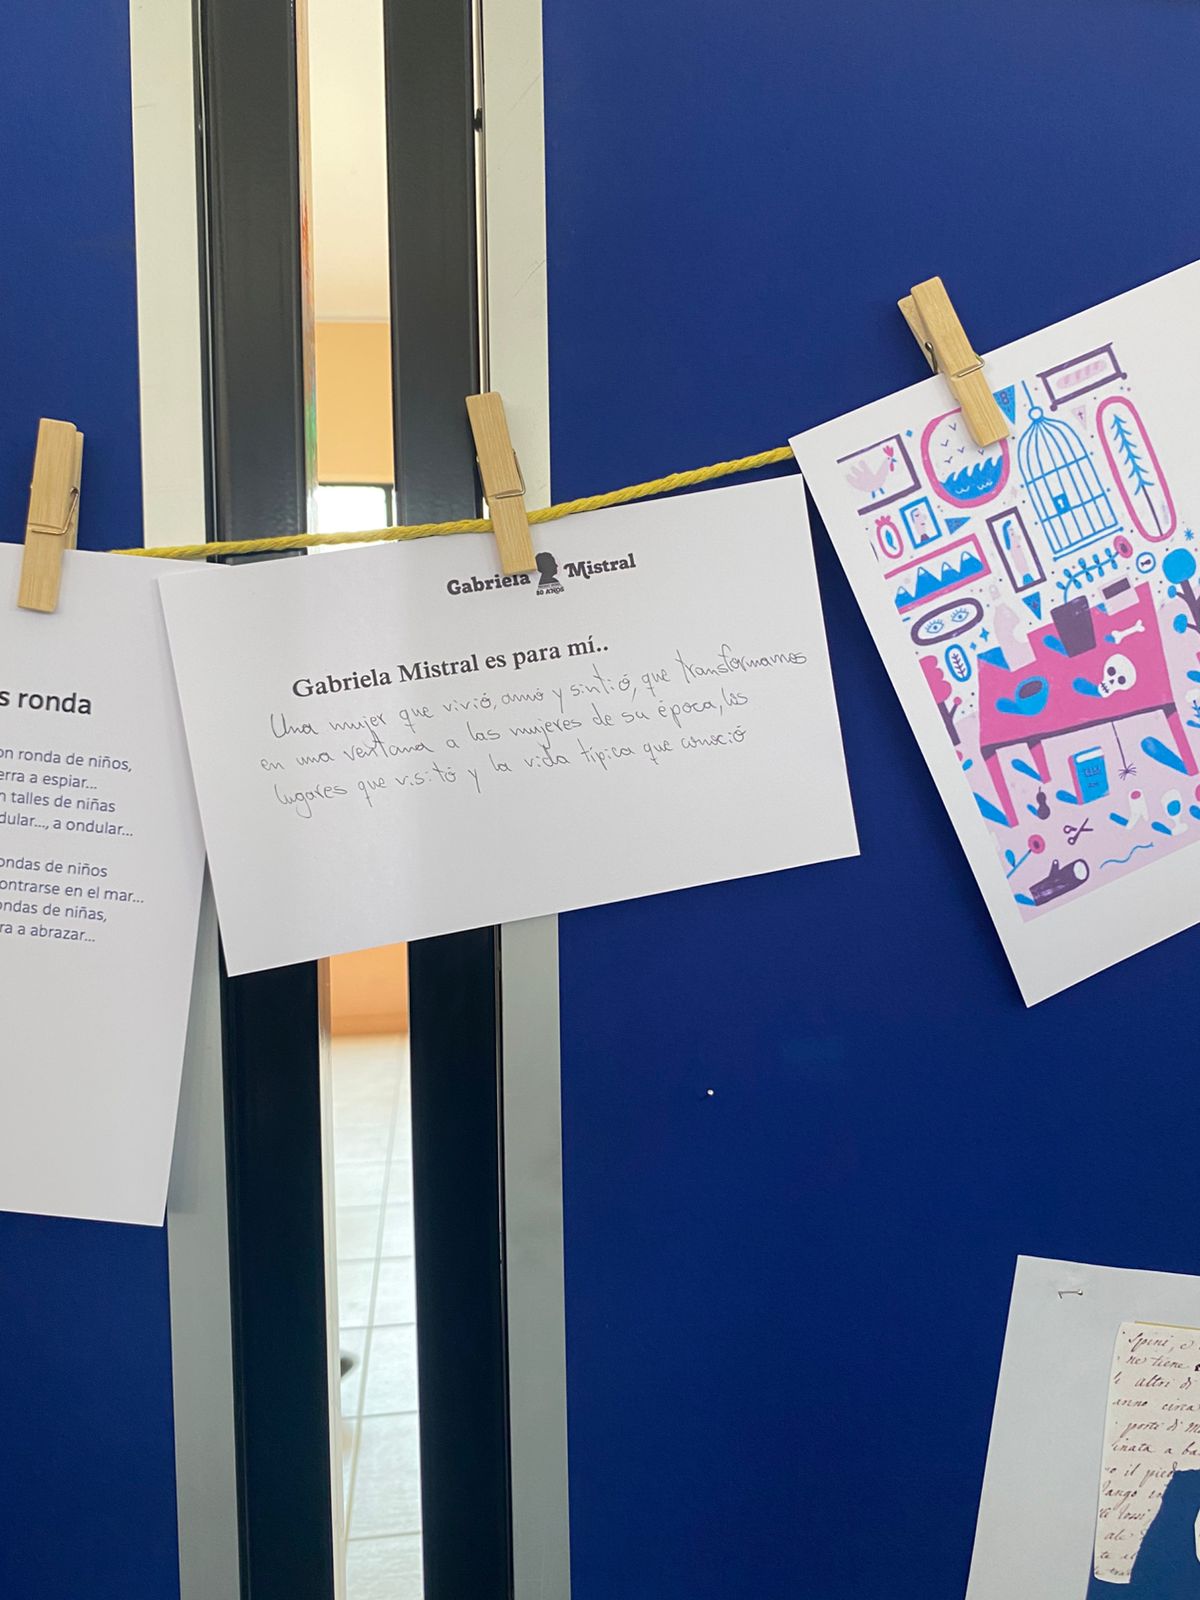 s ronda
on ronda de niños,
erra a espiar...
n talles de niñas
dular..., a ondular...
ondas de niños
ontrarse en el mar...
ondas de niñas,
ra a abrazar...
Gabriela Mistral
80 AÑOS
Gabriela Mistral es para mí..
Una mujer que vivió, amó y sintió, que transformamos
en una ventana a las mujeres de su época, los
lugares que visitó y la vida típica que conoció
B
Spini, e
ne tiene
altri di
anno circa
porti di M
inata a ba
o il pied